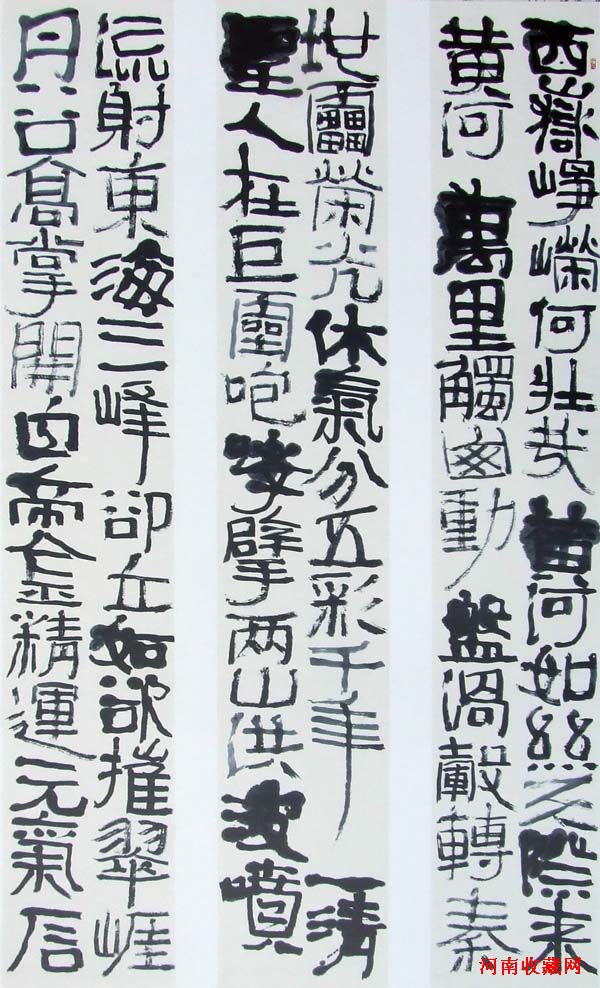 西嶽崢嶸何壯哉黄河如絲天際来
黄河萬里觸動盤渦轂轉秦
地靁榮光休氣分五彩千年一清
聖人在巨靈咆哮擘两山洪波噴
流射東海三峰卻立如欲摧翠崖
丹谷高掌開白帝金精運元氣石
河南收藏网